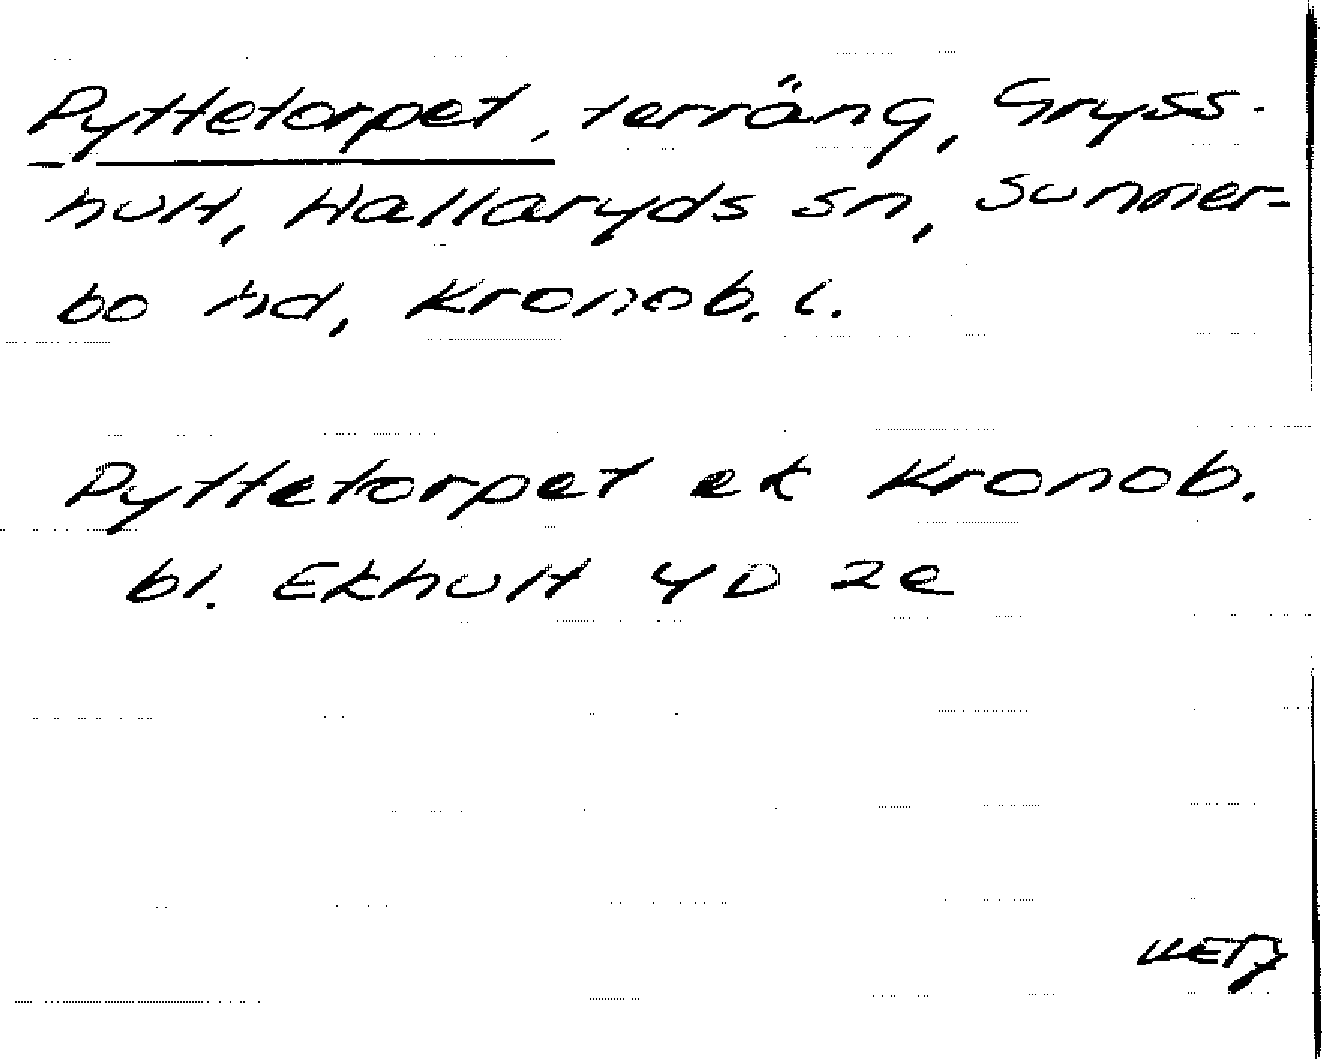 Pyttetorpet, terräng, Gryss-
hult, Hallaryds sn, Sunner-
bo hd, Kronob. l.
Pyttetorpet ek Kronob.
bl. Ekhult 4D 2e